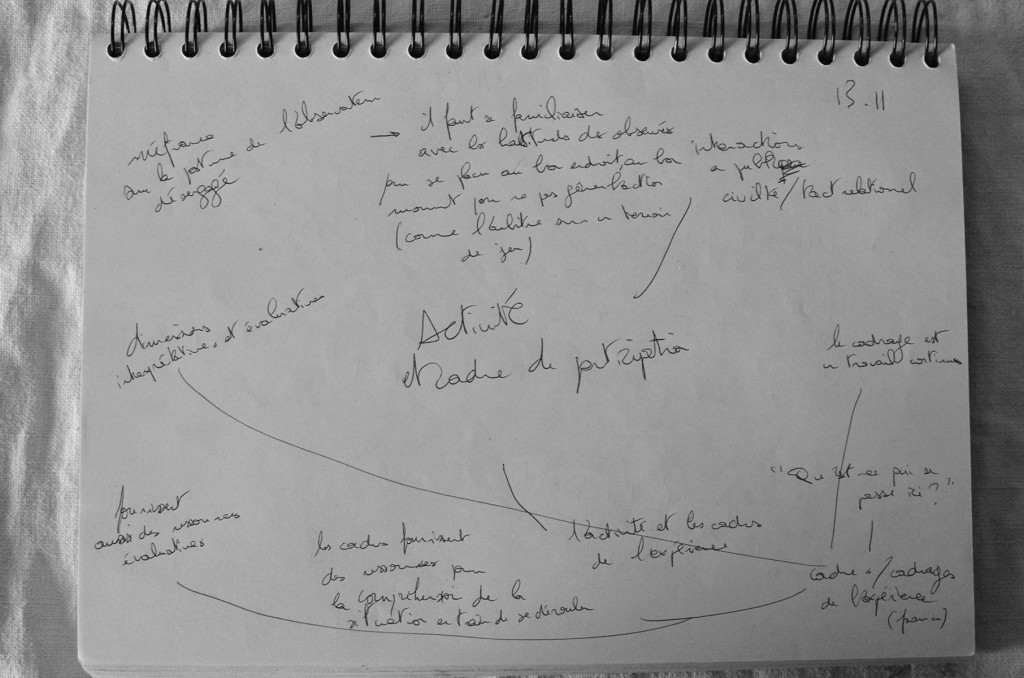 13.11
méfiance
sur la posture de l'observateur
désengagé
→ il faut se familiariser
avec les habitudes des observés
pour se placer au bon endroit, au bon
moment pour ne pas gêner l'action
(comme l'arbitre sur un terrain
de jeu)
interactions
en public
civilité / tact relationnel
Activité
et cadre de participation
dimensions
interprétatives et évaluatives
le cadrage est
un travail continu
"Qu'est-ce qui se
passe ici ?"
fournissent
aussi des ressources
évaluatives
les cadres fournissent
des ressources pour
la compréhension de la
situation en train de se dérouler
l'activité et les cadres
de l'expérience
cadres / cadrages
de l'expérience
(frames)